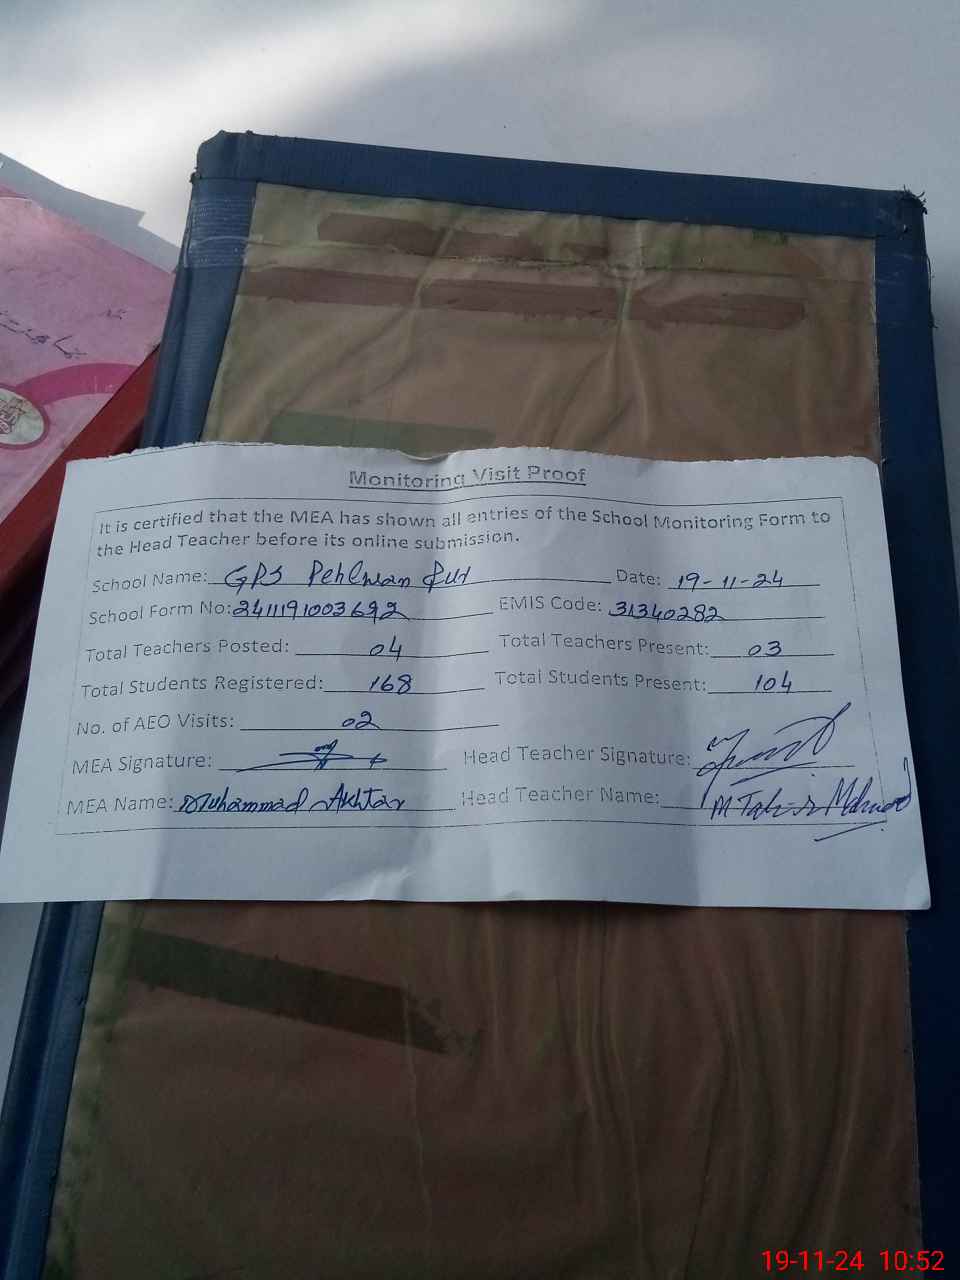 Monitoring Visit Proof
It is certified that the MEA has shown all entries of the School Monitoring Form to
the Head Teacher before its online submission.
School Name: GPS Pehlwan Pur Date: 19-11-24
School Form No: 2411191003692 EMIS Code: 31340282
Total Teachers Posted: 04 Total Teachers Present: 03
Total Students Registered: 168 Total Students Present: 104
No. of AEO Visits: 02
MEA Signature: Head Teacher Signature:
MEA Name: Muhammad Akhtar Head Teacher Name: M Tahir Mehmood
19-11-24 10:52